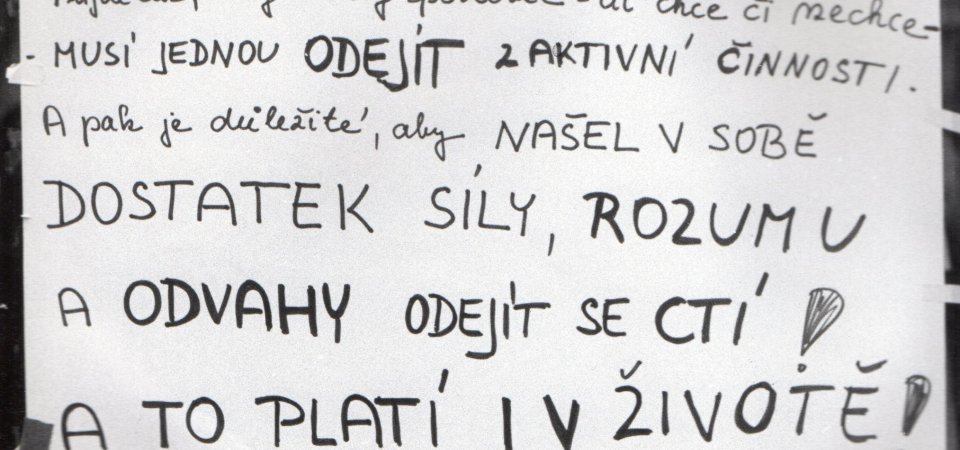 chce či nechce-
- MUSÍ JEDNOU ODEJÍT Z AKTIVNÍ ČINNOSTI.
A pak je důležité, aby NAŠEL V SOBĚ
DOSTATEK SÍLY, ROZUMU
A ODVAHY ODEJÍT SE CTÍ!
A TO PLATÍ I V ŽIVOTĚ!